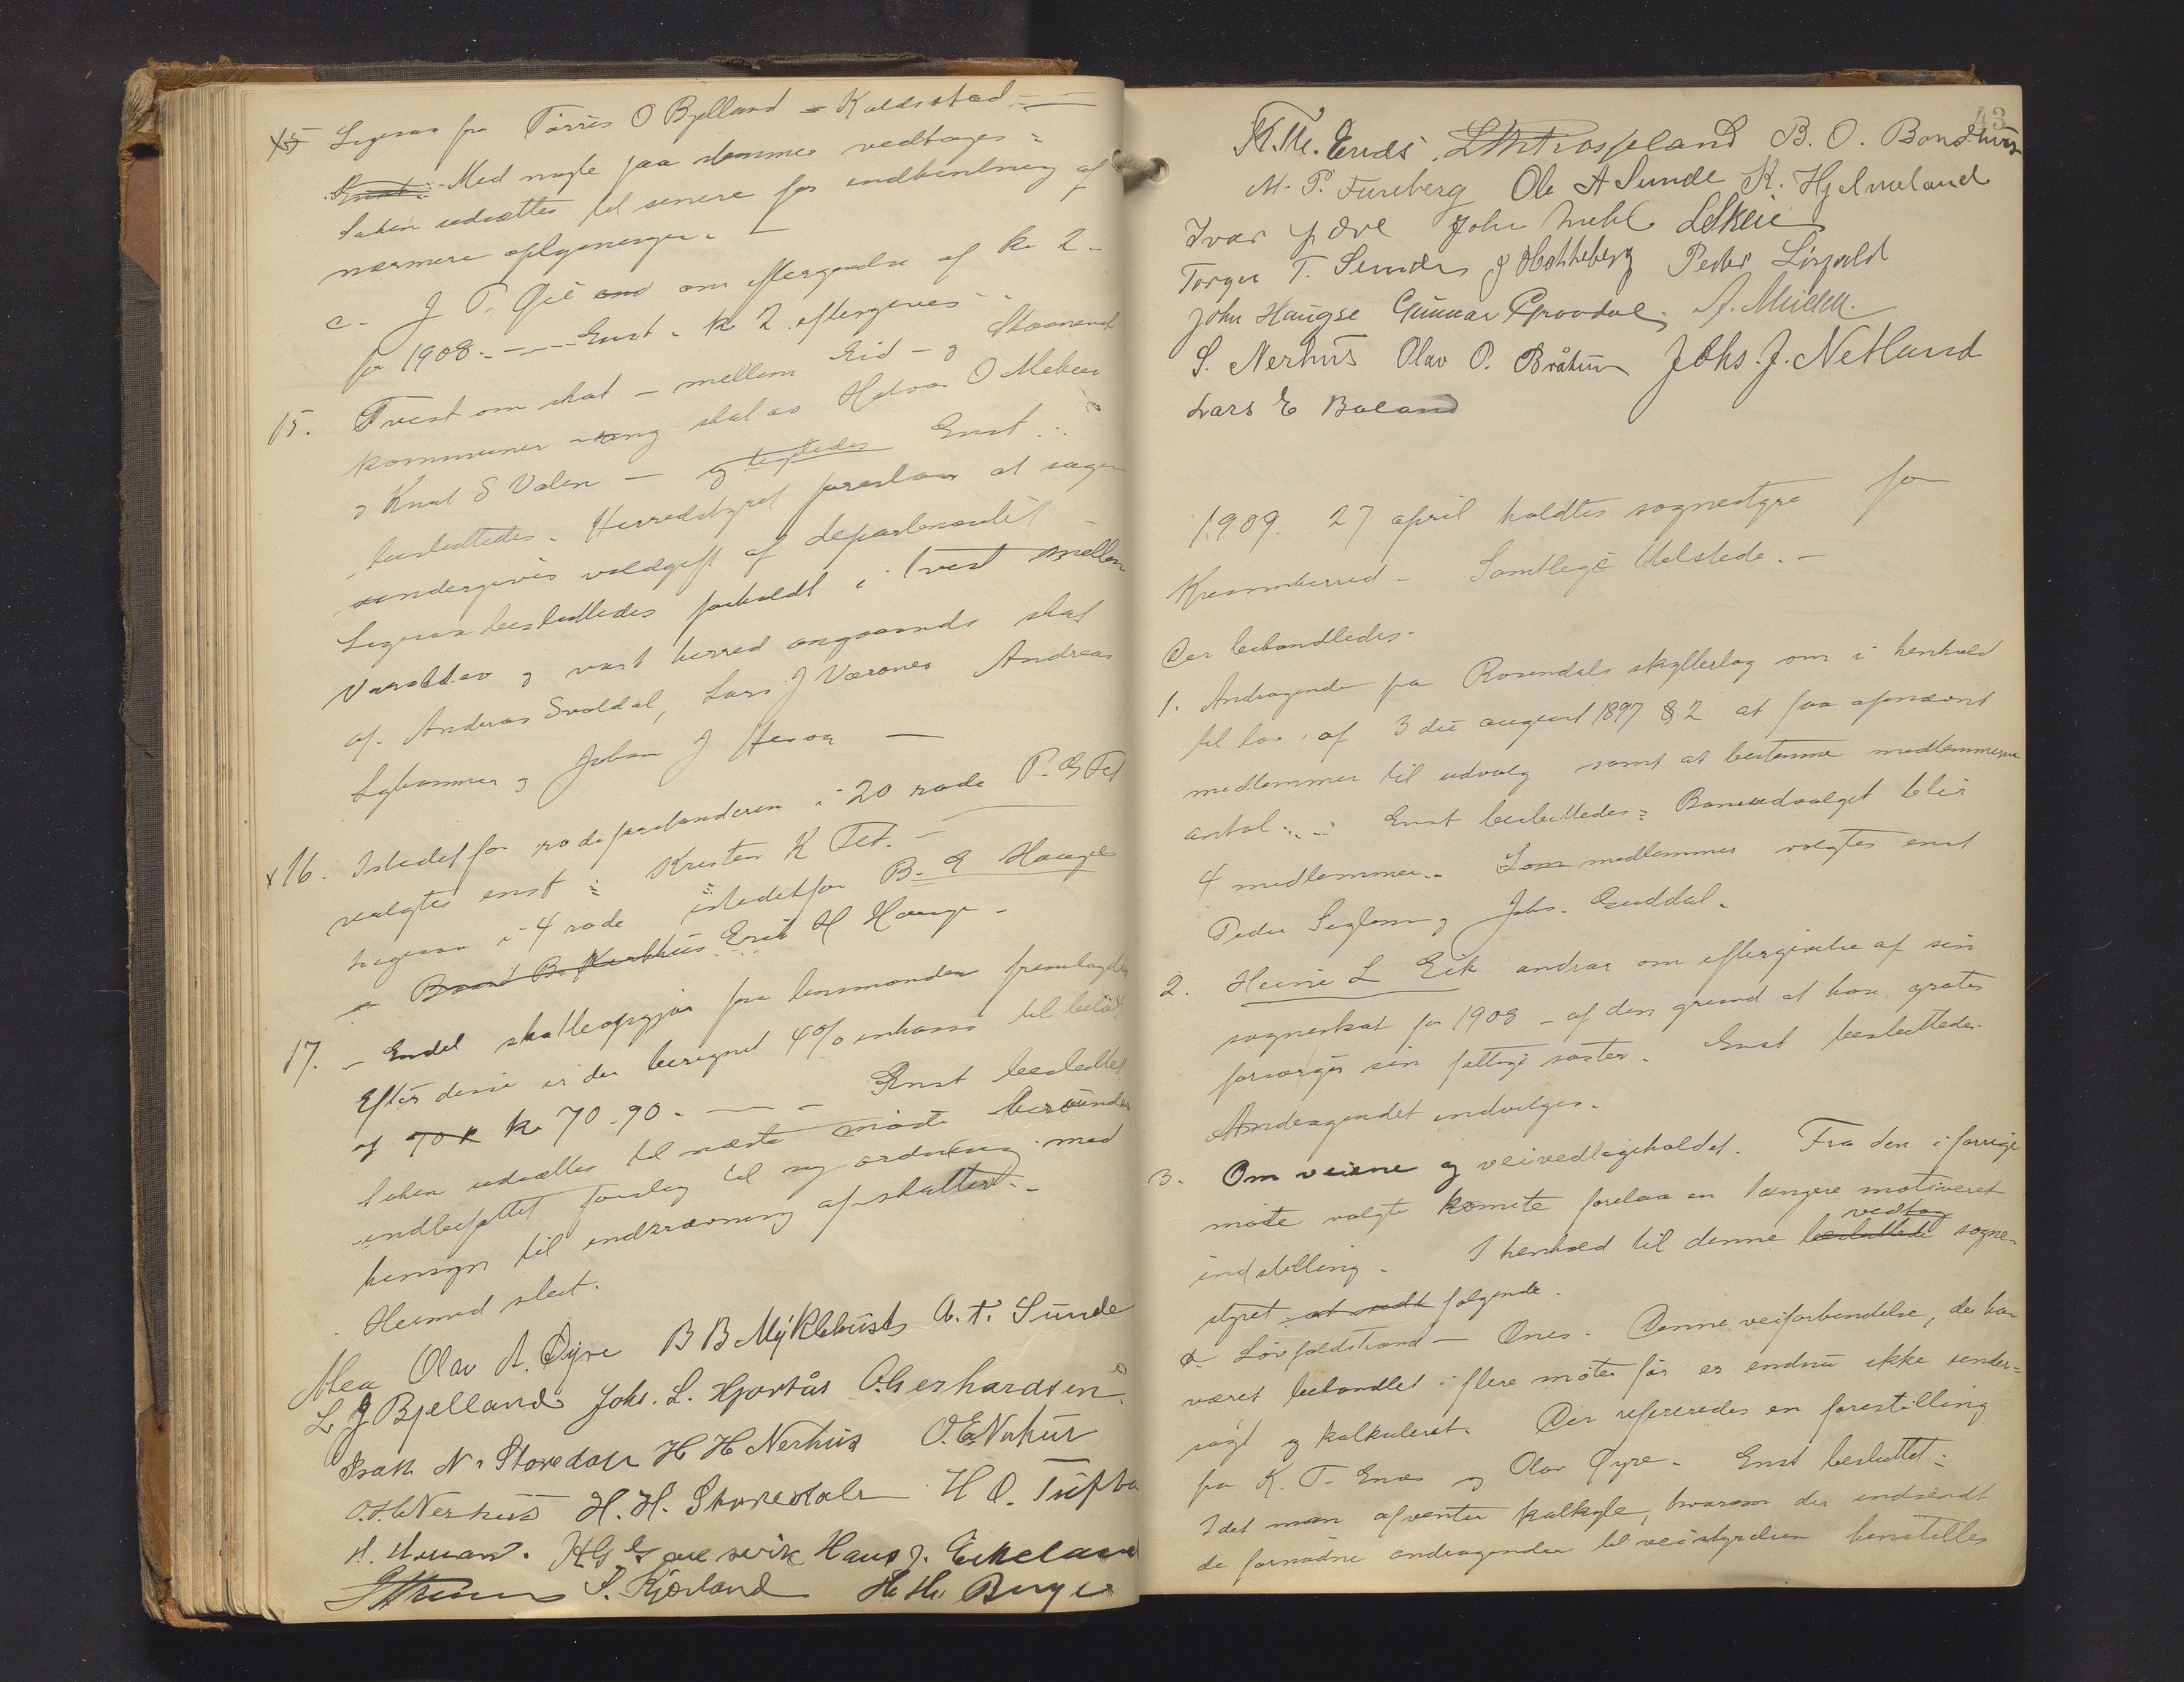 x5 Ligesaa fra Tørris O Bjelland = Koldestad
Enst. Med nogle faa stemmer vedtages =
Saken udsættes til senere for indhentning af
nærmere oplysninger. —
c - J P. Øie om eftergivelse af kr 2 -
for 1908. - — Enst. kr 2 eftergives.
15. Tvist om skat - mellem Eid - og Skaanevik
kommuner - skat av Halvor O Mehus
og Knut S Valen - og Enst
besluttedes. Herredstyret foreslaar at sagen
undergives voldgift af departementet
Ligesaa besluttedes forholdt i tvist mellem
Varaldsø og vort herred angaaende skat
af Andreas Svoldal, Lars JVærones Andreas
og Johan J —
x16. Istedetfor rodeforstanderen i 20 rode P. G Fet
valgtes enst: Kristen K Fet. —
Ligesaa i 4 rode istedetfor B. E Hauge
Baard B. Nerhus Erik H Hauge -
17. - Endel skatteopgjør fra lensmanden fremlagdes
Efter disse er der beregnet 4% inkasso til beløb
af 70 k kr 70.90. — Enst besluttet
Saken udsættes til næste møde herunder
indbefattet forslag til ny ordning med
hensyn til indkrævning af skatter. -
Hermed slut.
Olav A. Øyre B B Myklebust A. T. Sunde
L J Bjelland Johs. L. Hjortås O. Gerhardsen
Isak N. Storedale H H Nerhus O. E. Nerhus
O. H. Nerhus H. H. Storedale H O. Tufta
Hans J. Eikeland
S. Kjærland H. H. Berge
43
K. Th. Enes B. O. Bondhus
M. P. Fureberg Ole A Sunde K. Hjelmeland
Ivar John Mehl L Skeie
Torger T. Sunde J Hatteberg Peder
John Haugse Gunnar Grovdal.
S. Nerhus Olav O. Bråtun Johs. J. Netland
Lars E Boland
1909. 27 april holdtes sognestyre for
Kvinnherred - Samtlige tilstede. -
Der behandledes -
1. Andragende fra Rosendals skytterlag om i henhold
til lov af 3die august 1897 § 2 at faa opnævnt
medlemmer til udvalg samt at bestemme medlemmernes
antal. — Enst besluttedes: Baneudvalget blir
4 medlemmer. - Som medlemmer valgtes enst
Peder Seglem og Johs. Guddal.
2. Heine L Eik andrar om eftergivelse af sin
sogneskat for 1908 - af den grund at han gratis
forsørger sin fattige søster. Enst besluttedes
Andragendet indvilges.
3. Om veiene og veivedligeholdet. Fra den i forrige
møte valgte komite forelaa en længere motiveret
indstilling. I henhold til denne besluttede vedtog sogne-
styret følgende.
a Løvfaldstrand - Ænes. Denne veiforbindelse, der har
været behandlet i flere møter før er endnu ikke under-
søgt og kalkuleret. Der refereredes en forestilling
fra K. T. Enes og Olav Øyre. Enst besluttet:
Idet man afventer kalkyle, hvorom der indsendt
de fornødne andragender til veistyrelsen henstilles